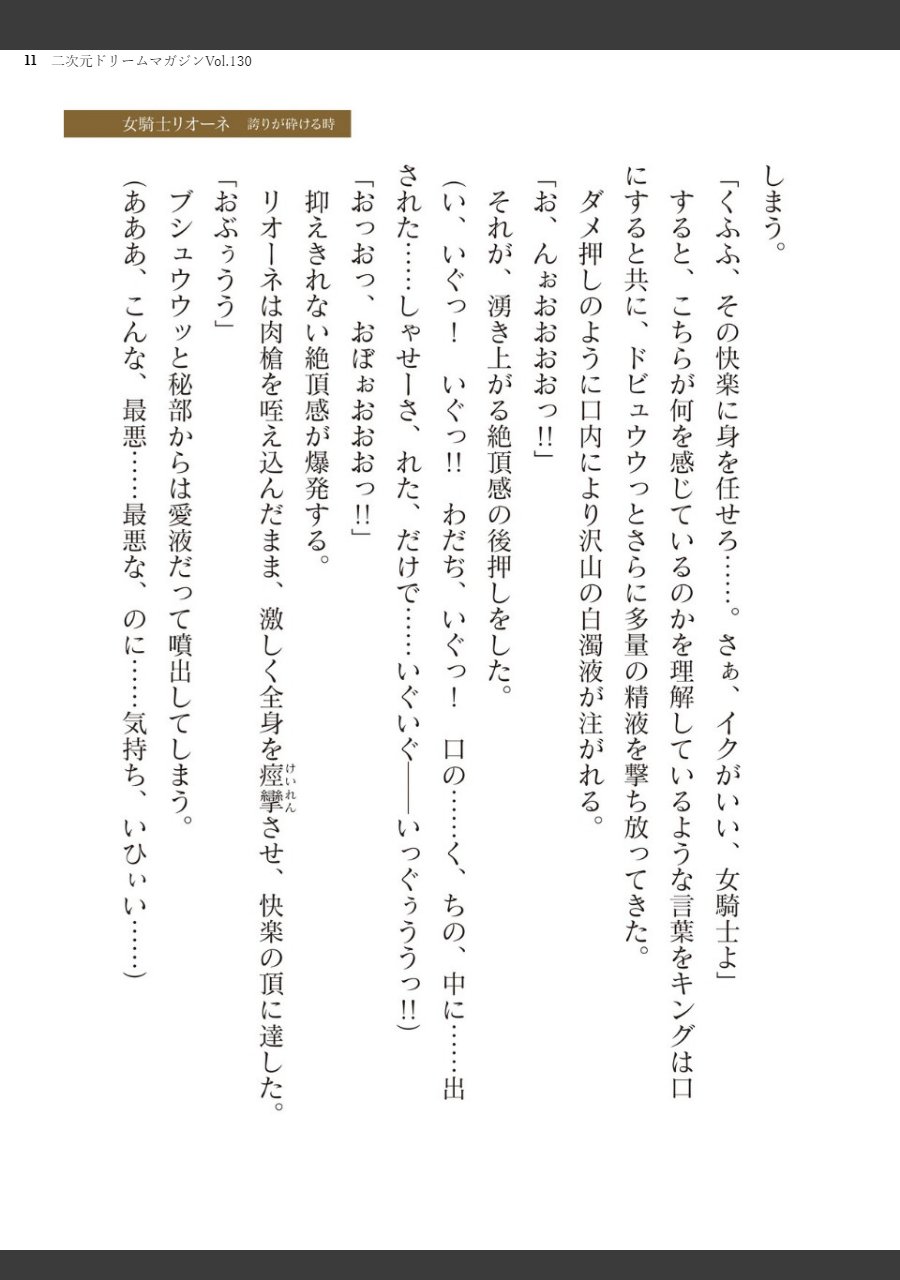 11 二次元ドリームマガジンVol.130
女騎士リオーネ 誇りが砕ける時
しまう。
「くふふ、その快楽に身を任せろ……。さぁ、イクがいい、女騎士よ」
すると、こちらが何を感じているのかを理解しているような言葉をキングは口
にすると共に、ドビュウウっとさらに多量の精液を撃ち放ってきた。
ダメ押しのように口内により沢山の白濁液が注がれる。
「お、んぉおおおおっ!!」
それが、湧き上がる絶頂感の後押しをした。
(い、いぐっ! いぐっ!! わだぢ、いぐっ! 口の……く、ちの、中に……出
された……しゃせーさ、れた、だけで……いぐいぐ――いっぐぅううっ!!)
「おっおっ、おぼぉおおおっ!!」
抑えきれない絶頂感が爆発する。
リオーネは肉槍を咥え込んだまま、激しく全身を痙攣させ、快楽の頂に達した。
けいれん
「おぶぅうう」
ブシュウウッと秘部からは愛液だって噴出してしまう。
(あああ、こんな、最悪……最悪な、のに……気持ち、いひぃい……)